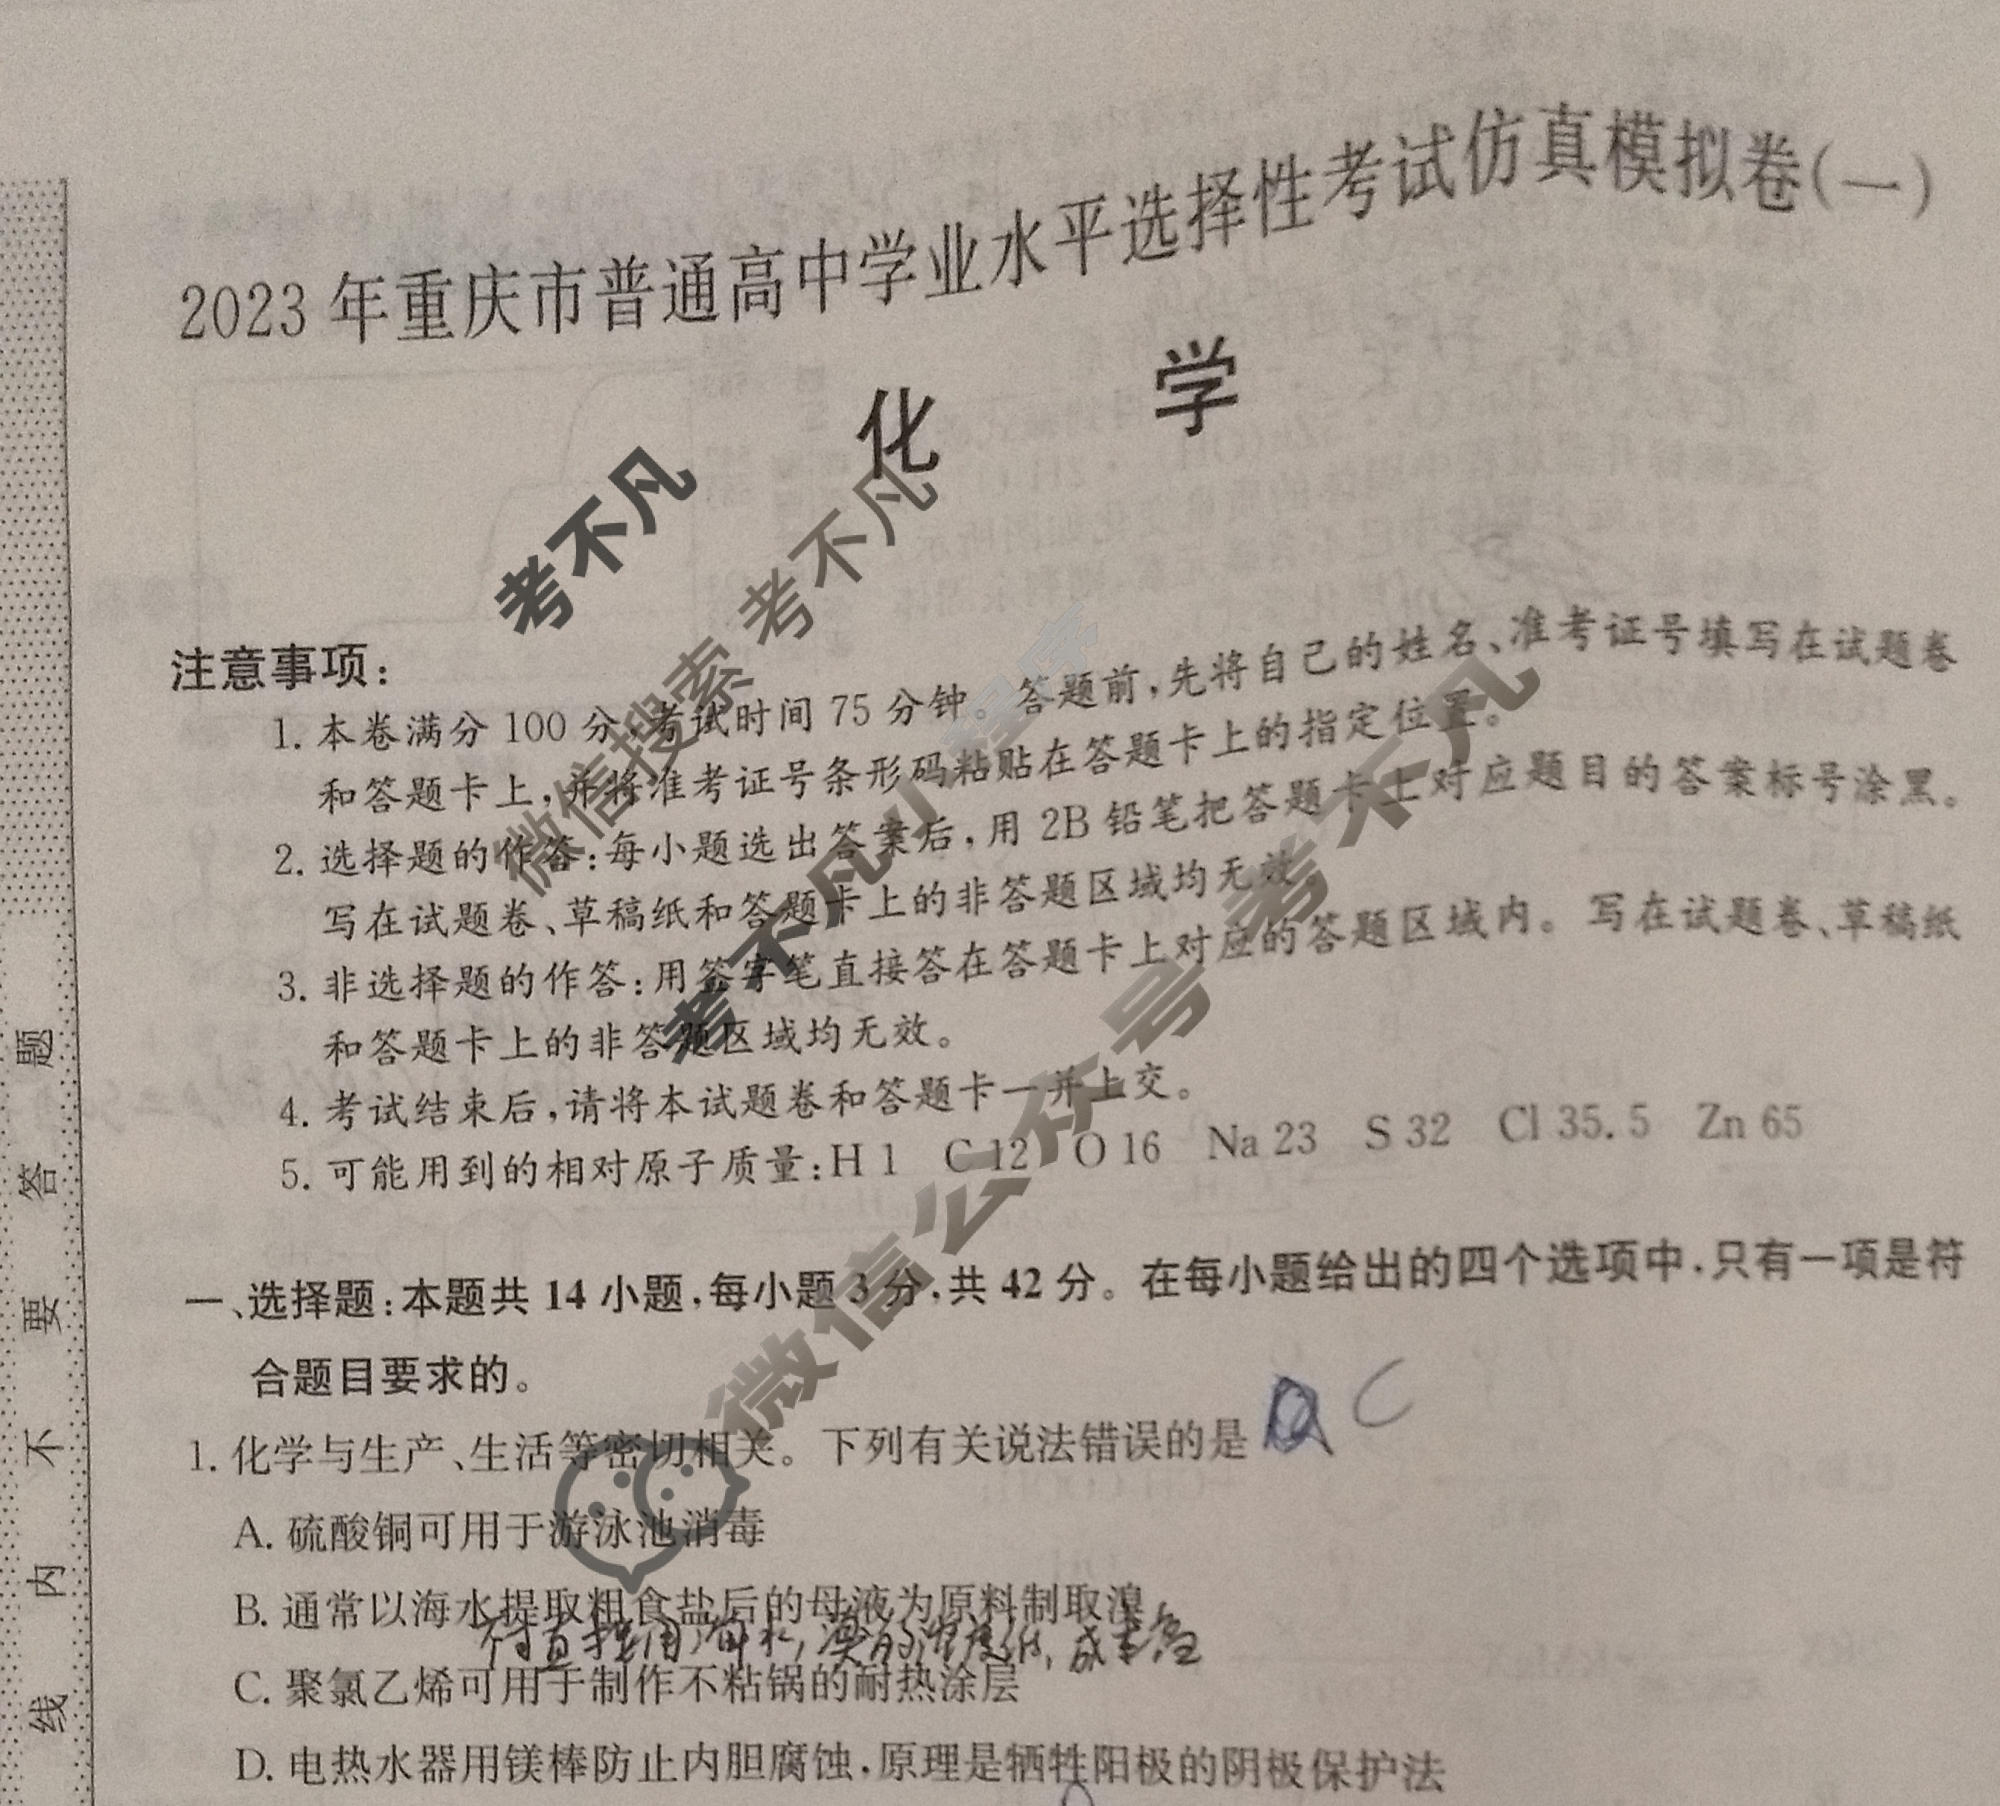 2023年重庆市普通高中学业水平选择性考试仿真模拟卷(一)
化 学
考不凡
微信搜索 考不凡
考不凡小程序
微信公众号 考不凡
注意事项:
1. 本卷满分100分,考试时间75分钟。答题前,先将自己的姓名、准考证号填写在试题卷
和答题卡上,并将准考证号条形码粘贴在答题卡上的指定位置。
2. 选择题的作答:每小题选出答案后,用2B铅笔把答题卡上对应题目的答案标号涂黑。
写在试题卷、草稿纸和答题卡上的非答题区域均无效。
3. 非选择题的作答:用签字笔直接答在答题卡上对应的答题区域内。写在试题卷、草稿纸
和答题卡上的非答题区域均无效。
4. 考试结束后,请将本试题卷和答题卡一并上交。
5. 可能用到的相对原子质量:H 1 C 12 O 16 Na 23 S 32 Cl 35.5 Zn 65
一、选择题:本题共14小题,每小题3分,共42分。在每小题给出的四个选项中,只有一项是符
合题目要求的。
1. 化学与生产、生活等密切相关。下列有关说法错误的是 C
A. 硫酸铜可用于游泳池消毒
B. 通常以海水提取粗食盐后的母液为原料制取溴
直接用海水,溴的浓度低,成本高
C. 聚氯乙烯可用于制作不粘锅的耐热涂层
D. 电热水器用镁棒防止内胆腐蚀,原理是牺牲阳极的阴极保护法
题
答
要
不
内
线